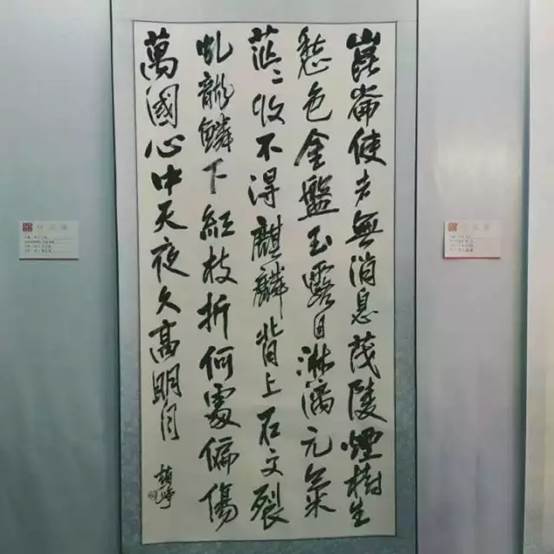 崑崙使者無消息茂陵煙樹生
愁色金盤玉露自淋漓元氣
茫〻收不得麒麟背上石文裂
虬龍鱗下紅枝折何處偏傷
萬國心中天夜久高明月